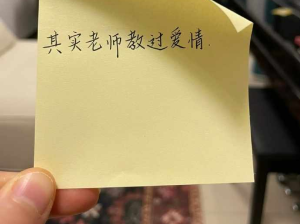 其实老师教过爱情.